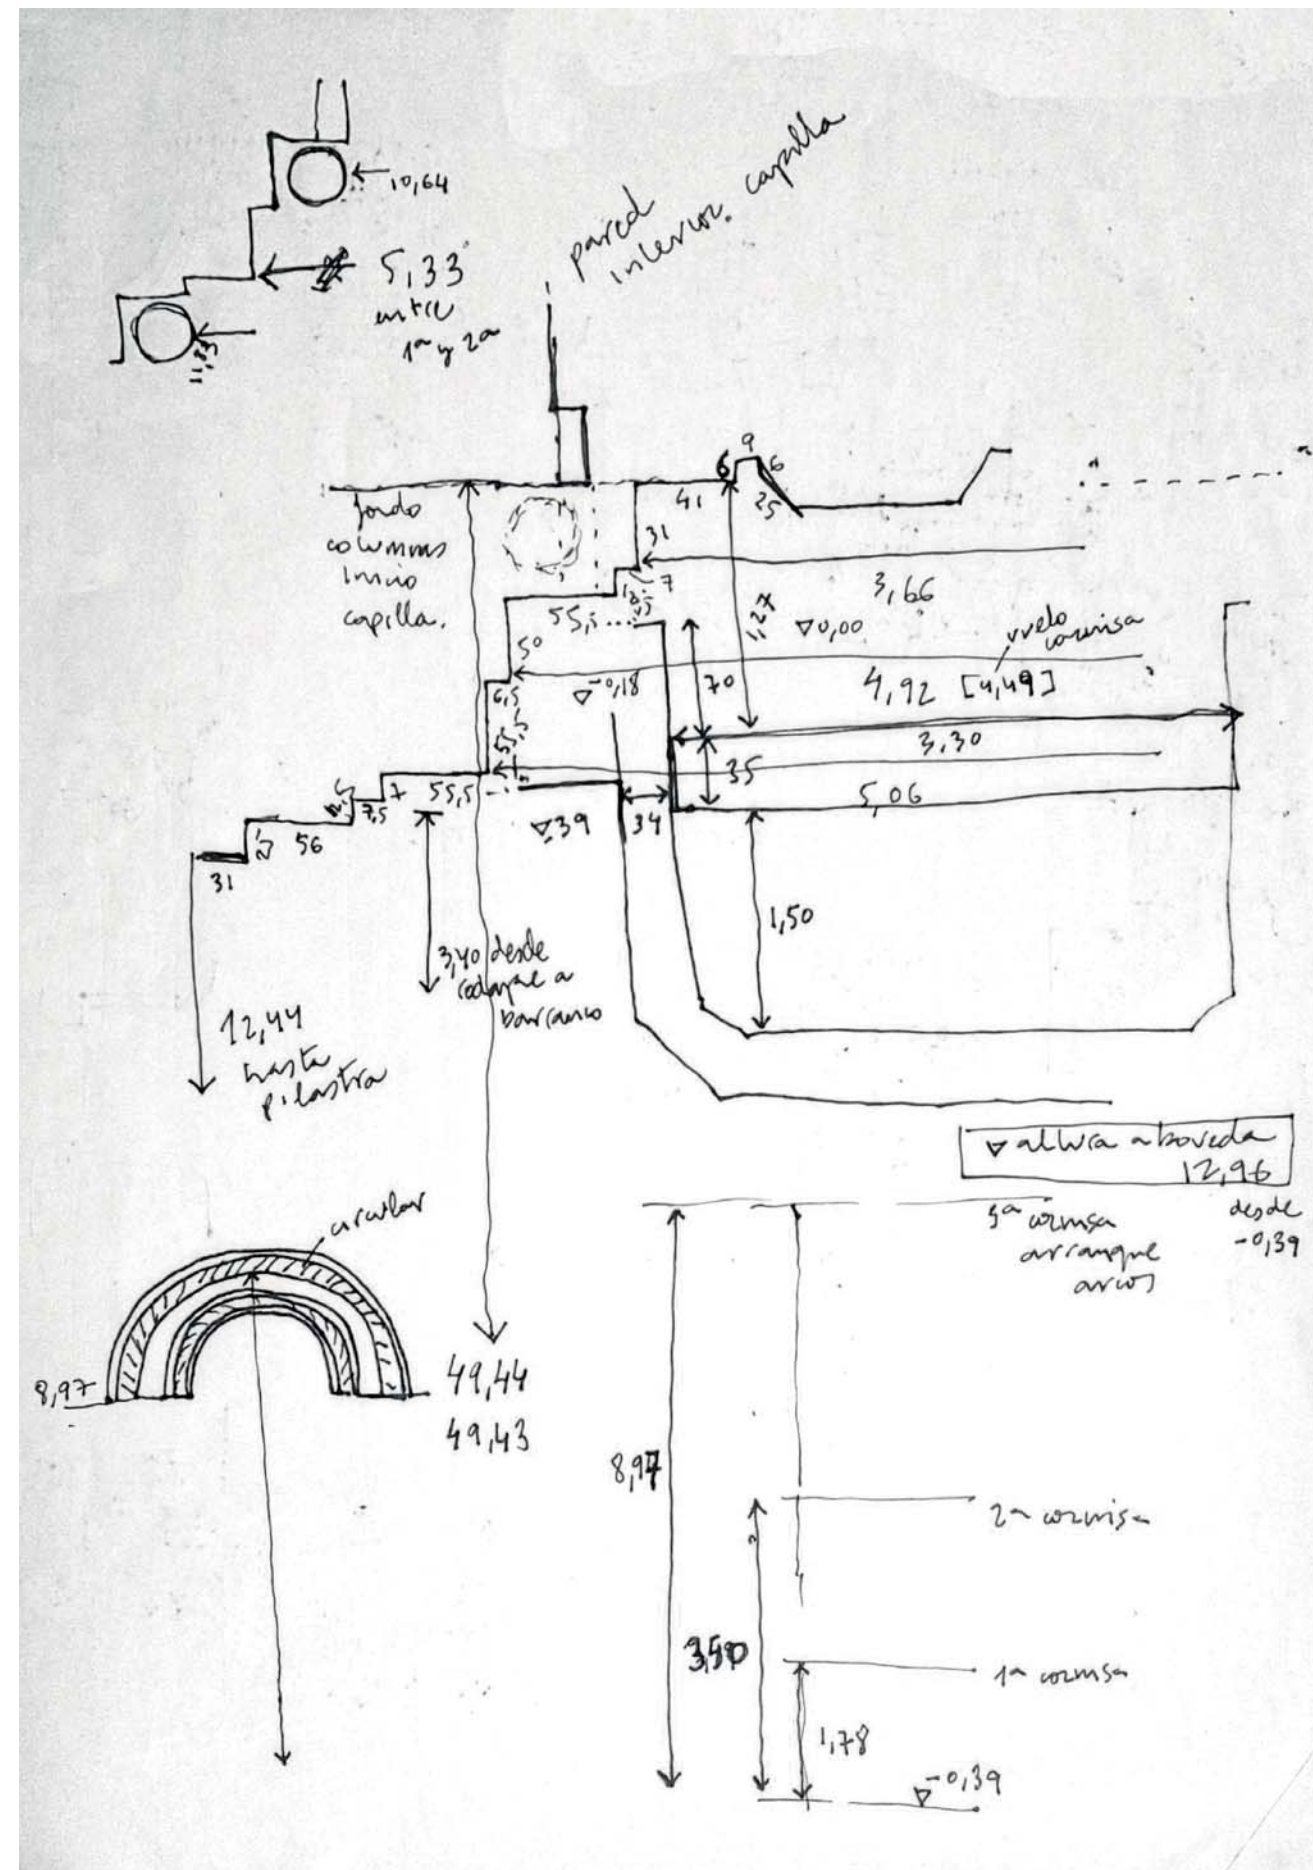 10,64
5,33
entre
1ª y 2ª
11,83
pared
interior capilla
fondo
columnas
inicio
capilla.
41
6
9
6
25
31
7
3,66
55,5
1,27
▽0,00
vuelo
cornisa
50
70
4,92 [4,49]
▽-0,18
6,5
55,5
3,30
35
5,06
7
55,5
7,5
▽39
34
56
31
1,50
3,40 desde
rodapie a
barranco
12,44
hasta
pilastra
▽ altura a boveda
12,96
desde
-0,39
3ª cornisa
arranque
arcos
circular
8,97
49,44
49,43
8,97
2ª cornisa
3,50
1ª cornisa
1,78
▽-0,39